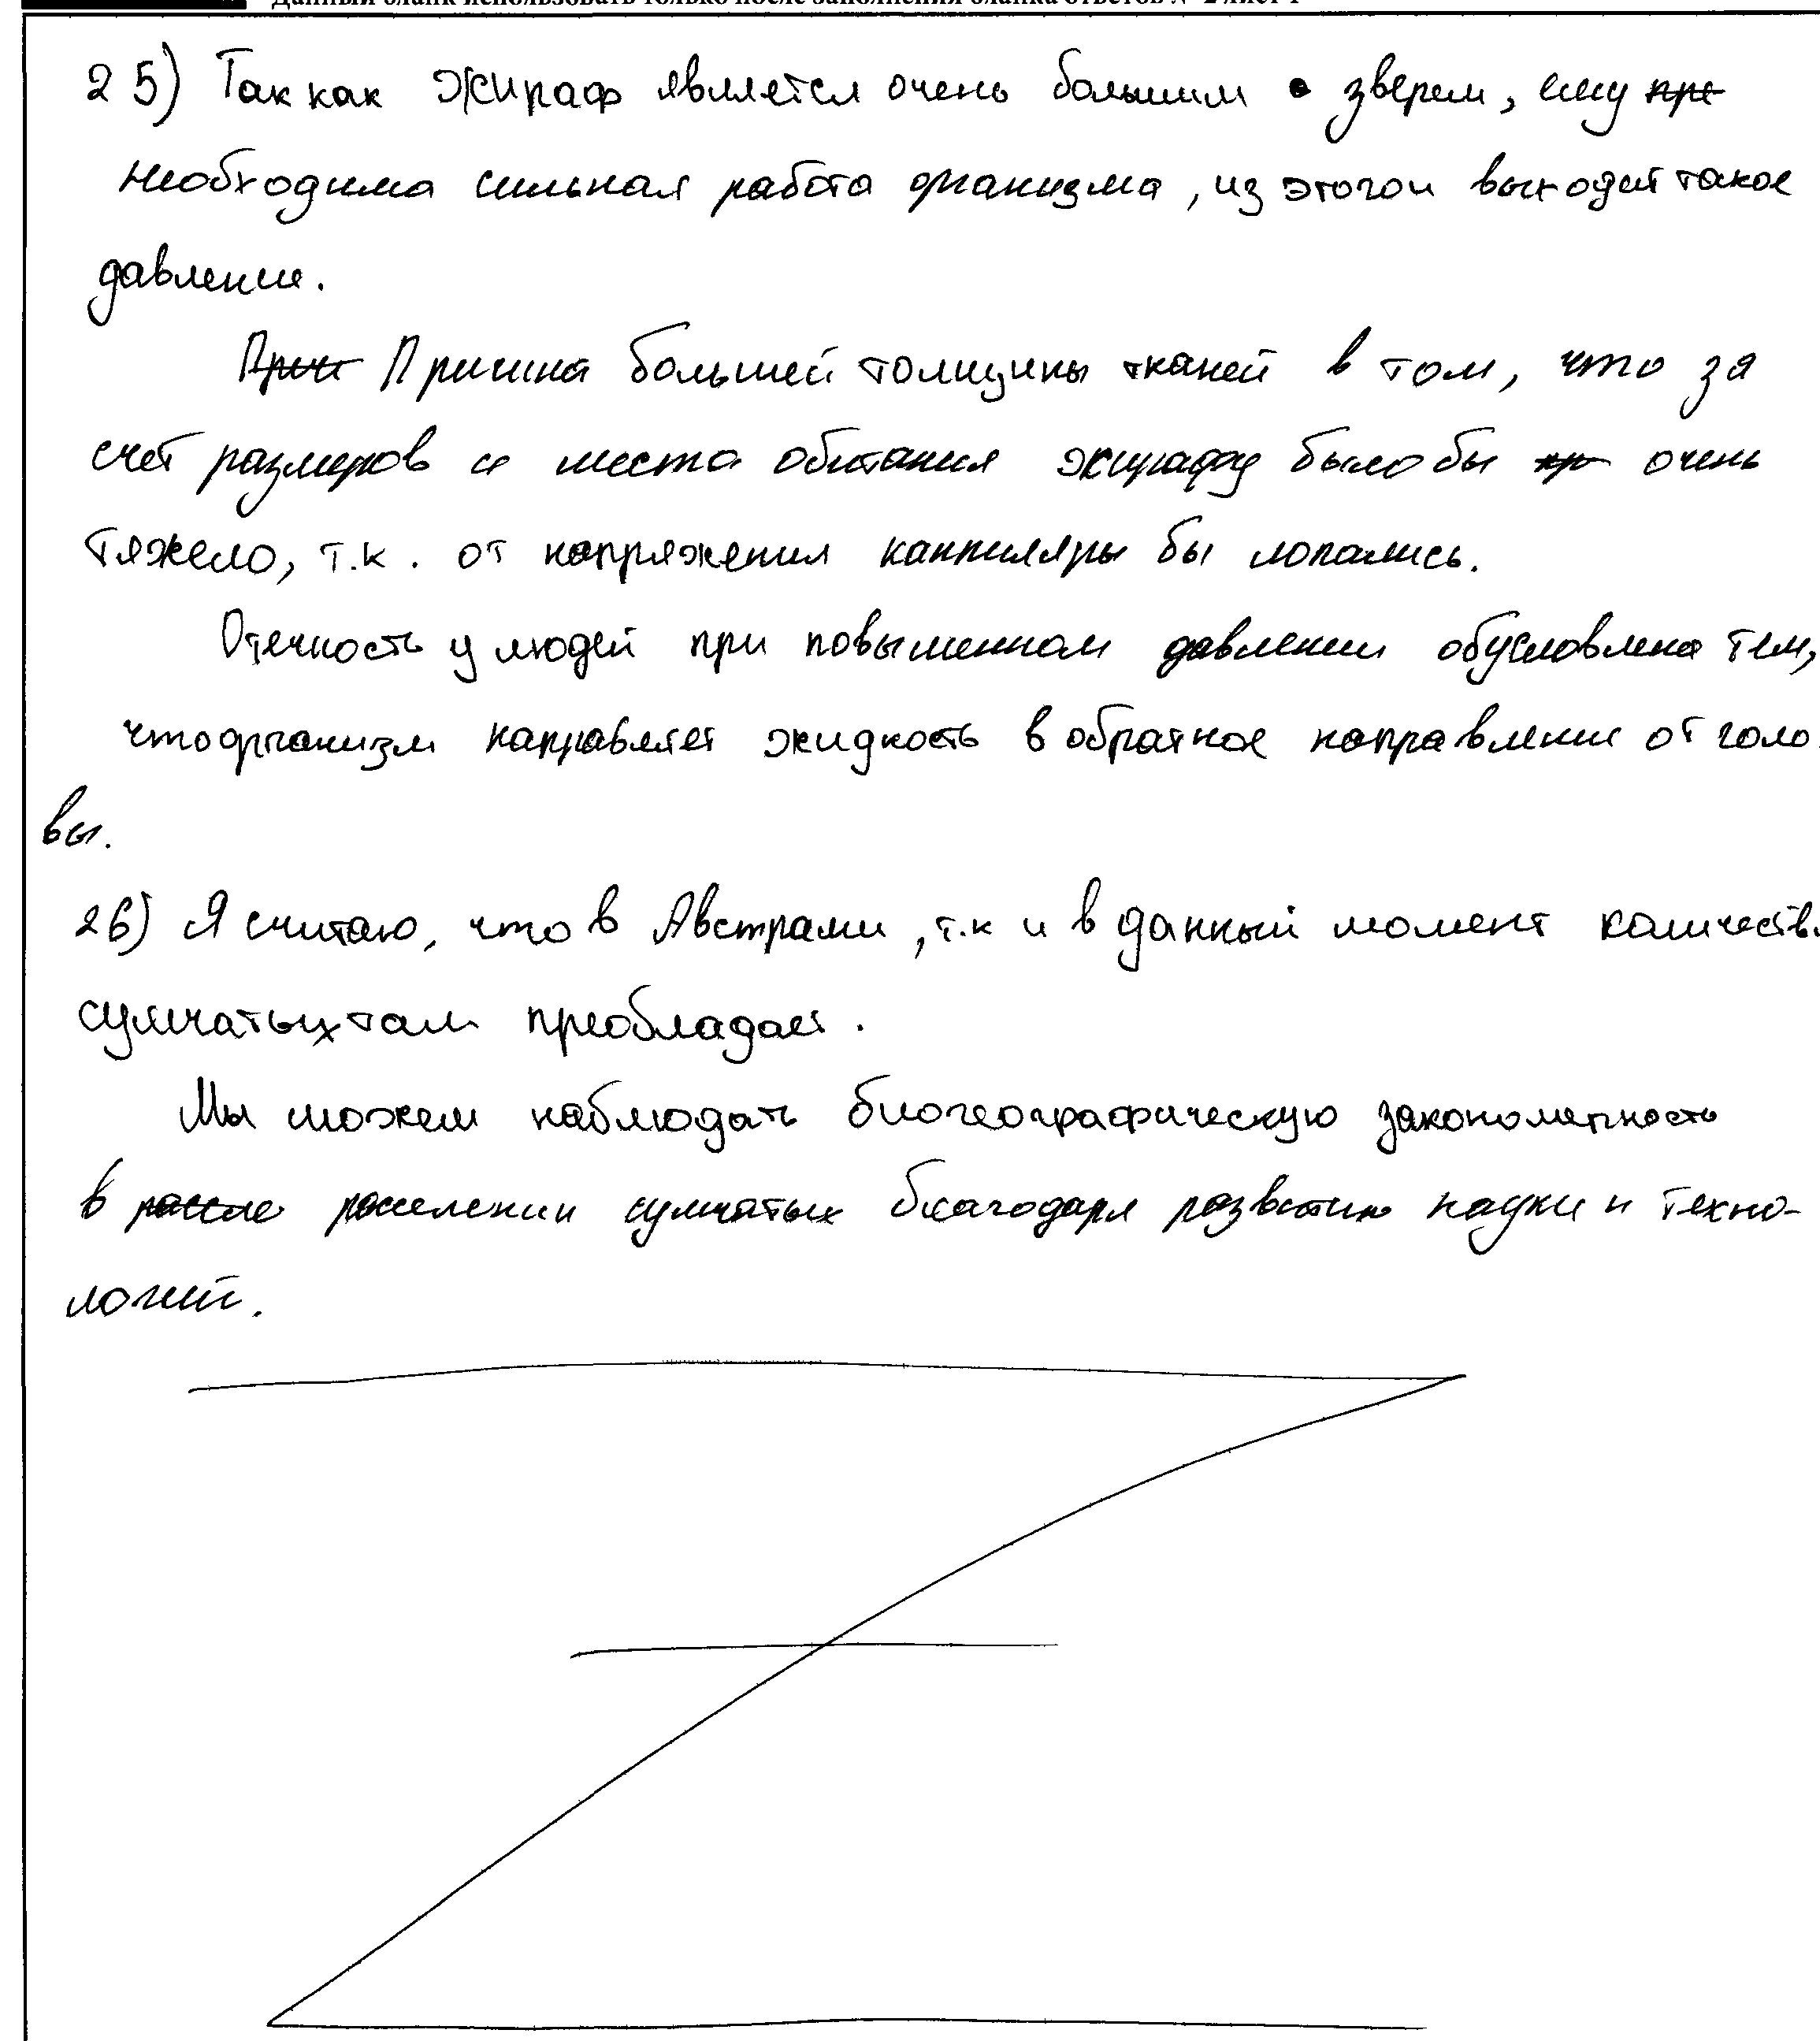 Данный бланк использовать только после заполнения бланка ответов № 2 лист 1
25) Так как жираф является очень большим зверем, ему пре
необходима сильная работа организма, из этогои выходит такое
давление.
Прич Причина большей толщины тканей в том, что за
счет размеров и места обитания жирафу было бы очень
тяжело, т.к. от напряжения каппиляры бы лопались.
Отечность у людей при повышенном давлении обусловлена тем,
что организм направляет жидкость в обратное направление от голо
вы.
26) Я считаю, что в Австрали, т.к и в данный момент количеств
сумчатых там преобладает.
Мы можем наблюдать биогеографическую закономерность
в рассле расселении сумчатых благодаря развитию науки и техно-
логий.